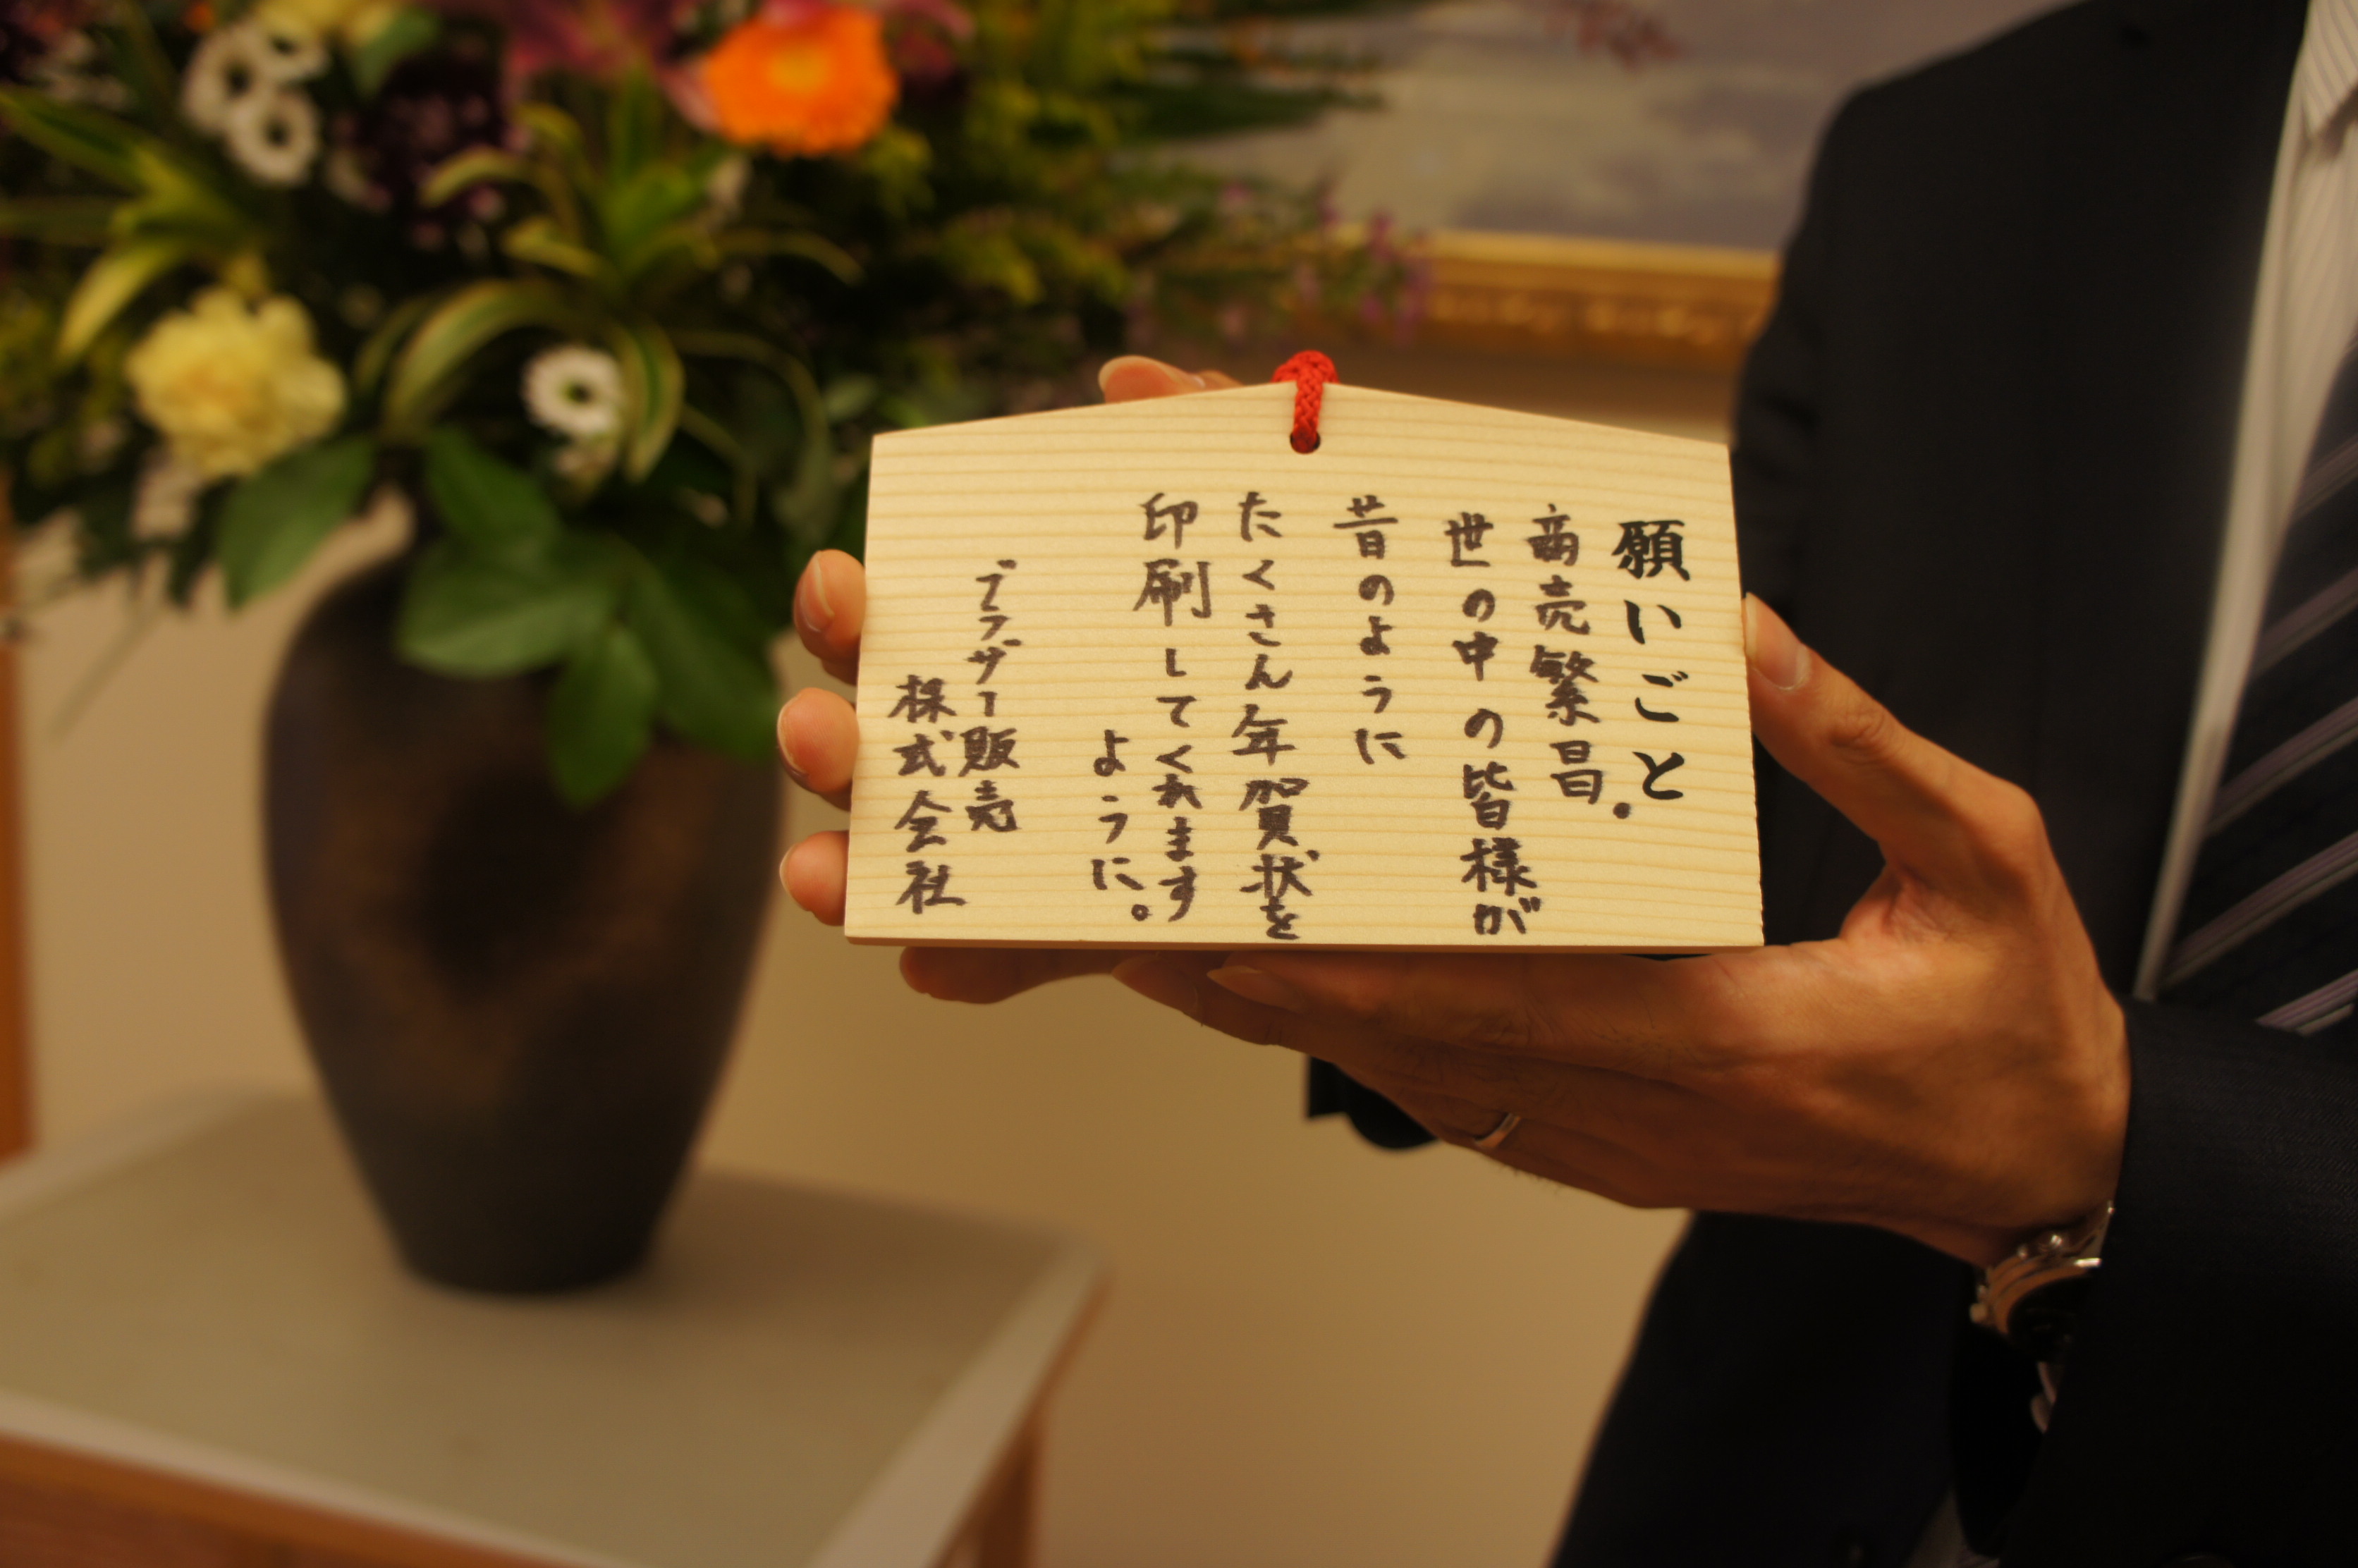 願いごと
商売繁昌。
世の中の皆様が
昔のように
たくさん年賀状を
印刷してくれます
ように。
ブラザー販売
株式会社